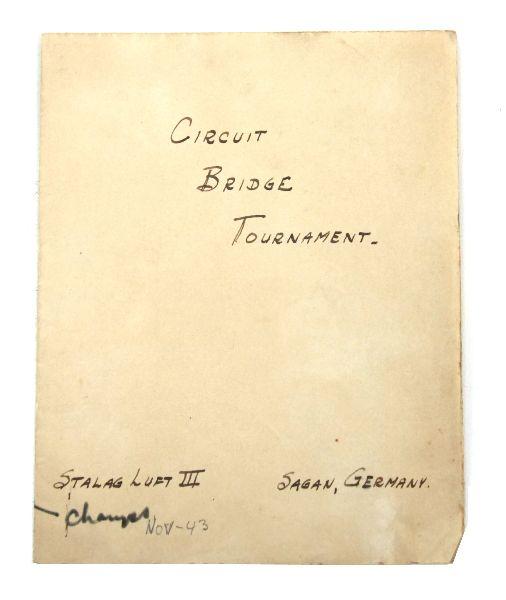 CIRCUIT
BRIDGE
TOURNAMENT-
STALAG LUFT III SAGAN, GERMANY.
NOV-43